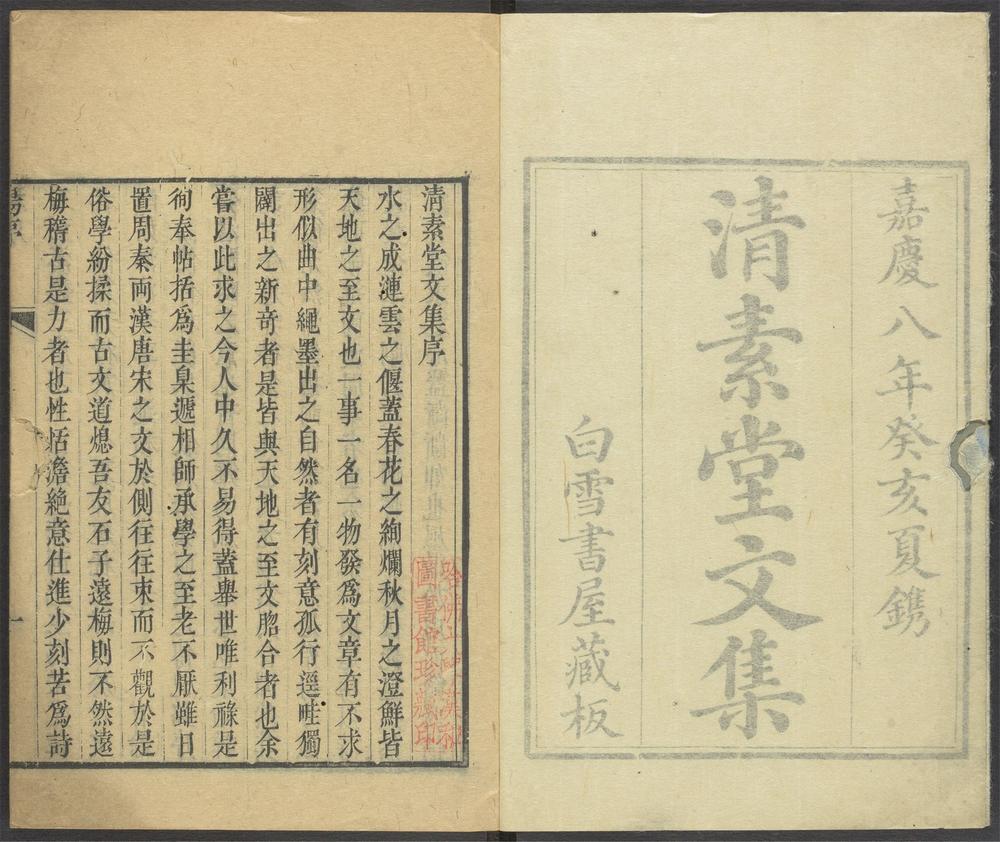 嘉慶八年癸亥夏鐫
清素堂文集
白雪書屋藏板
清素堂文集序
水之成漣雲之偃蓋春花之絢爛秋月之澄鮮皆
天地之至文也一事一名一物發爲文章有不求
形似曲中繩墨出之自然者有刻意孤行逕畦獨
闢出之新奇者是皆與天地之至文脗合者也余
嘗以此求之今人中久不易得蓋舉世唯利祿是
徇奉帖括爲圭臬遞相師承學之至老不厭雖日
置周秦両漢唐宋之文於側往往束而不觀於是
俗學紛揉而古文道熄吾友石子遠梅則不然遠
梅稽古是力者也性恬澹絶意仕進少刻苦爲詩
一
哈佛大學漢和
圖書館珍藏印